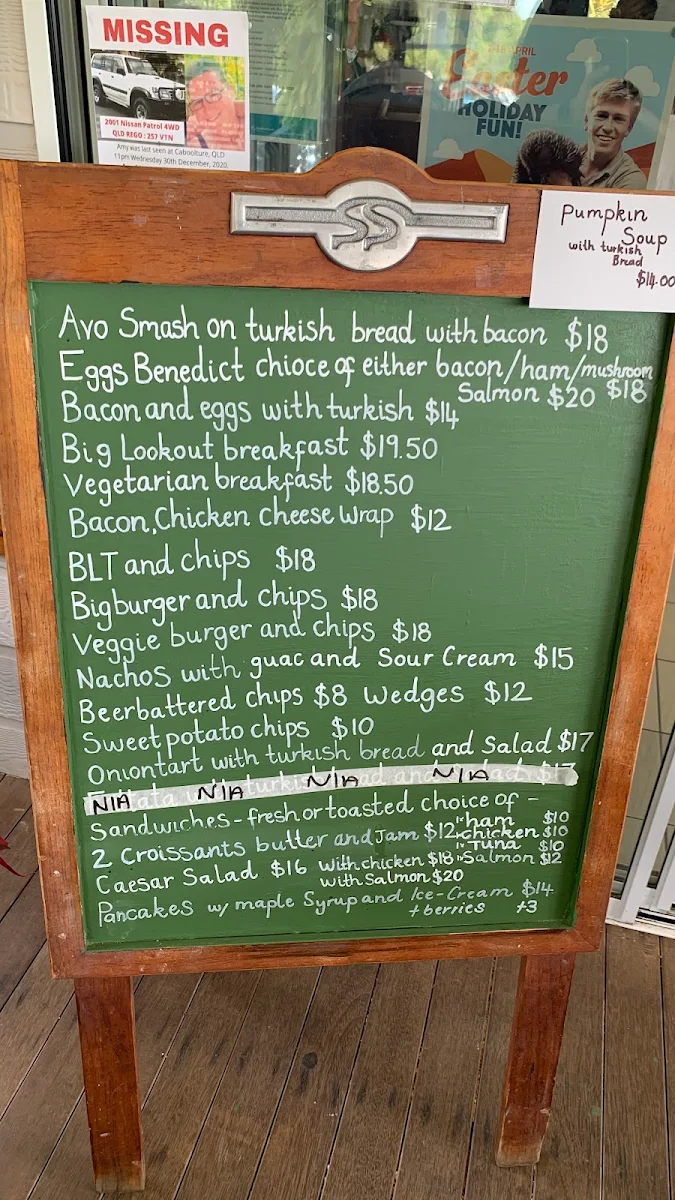 MISSING
2001 Nissan Patrol 4WD
QLD REGO : 257 VTN
Amy was last seen at Caboolture, QLD
11pm Wednesday 30th December, 2020.
APRIL
Easter
HOLIDAY
FUN!
SS
Pumpkin
Soup
with turkish
Bread
$14.00
Avo Smash on turkish bread with bacon $18
Eggs Benedict chioce of either bacon/ham/mushroom $18
Salmon $20
Bacon and eggs with turkish $14
Big Lookout breakfast $19.50
Vegetarian breakfast $18.50
Bacon, Chicken Cheese Wrap $12
BLT and chips $18
Bigburger and chips $18
Veggie burger and chips $18
Nachos with guac and Sour Cream $15
Beerbattered chips $8 Wedges $12
Sweet potato chips $10
Oniontart with turkish bread and Salad $17
N/A N/A N/A N/A
Sandwiches - fresh or toasted choice of -
"ham $10
"chicken $10
"Tuna $10
"Salmon $12
2 Croissants butter and Jam $12
Caesar Salad $16 with chicken $18
with Salmon $20
Pancakes w/ maple Syrup and Ice-Cream $14
+ berries +3